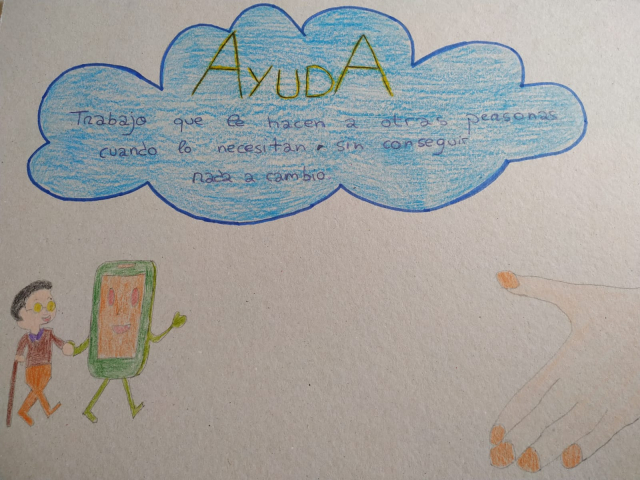 AYUDA
Trabajo que le hacen a otras personas
cuando lo necesitan, sin conseguir
nada a cambio